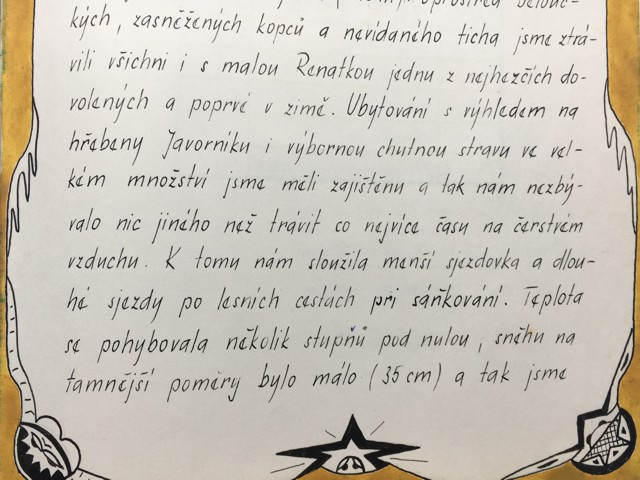 uprostřed belouč-
kých, zasněžených kopců a nevídaného ticha jsme ztrá-
vili všichni i s malou Renatkou jednu z nejhezčích do-
volených a poprvé v zimě. Ubytování s výhledem na
hřebeny Javorníku i výbornou chutnou stravu ve vel-
kém množství jsme měli zajištěnu a tak nám nezbý-
valo nic jiného než trávit co nejvíce času na čerstvém
vzduchu. K tomu nám sloužila menší sjezdovka a dlou-
hé sjezdy po lesních cestách při sáňkování. Teplota
se pohybovala několik stupňů pod nulou, sněhu na
tamnější poměry bylo málo (35 cm) a tak jsme